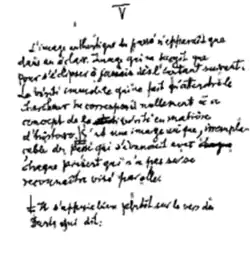 V
L'image authentique du passé n'apparaît que
dans un éclair. Image qui ne surgit que
pour s'éclipser à jamais dès l'instant suivant.
La vérité immobile qui ne fait qu'attendre le
chercheur ne correspond nullement à ce
concept de la vérité en matière
d'histoire. c'est une image unique, irrempla-
çable du passé qui s'évanouit avec chaque
chaque présent qui n'a pas su se
reconnaître visé par elle.
Il s'appuie bien plutôt sur le vers du
Dante qui dit: